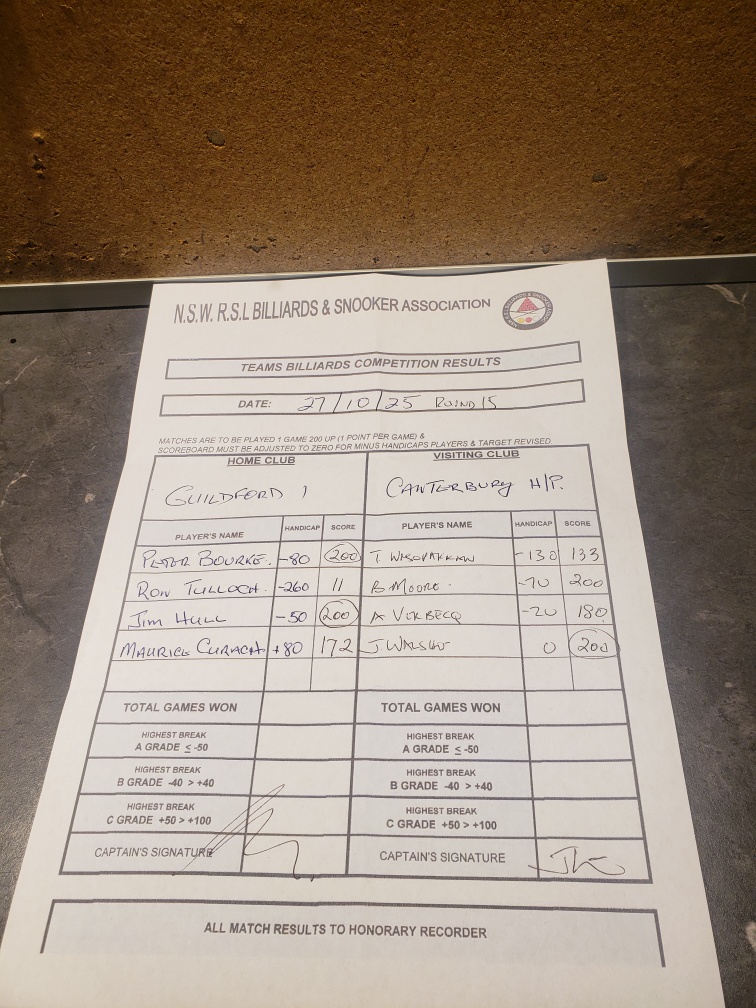 N.S.W. R.S.L BILLIARDS & SNOOKER ASSOCIATION
TEAMS BILLIARDS COMPETITION RESULTS
DATE: 27/10/25 ROUND 15
MATCHES ARE TO BE PLAYED 1 GAME 200 UP (1 POINT PER GAME) &
SCOREBOARD MUST BE ADJUSTED TO ZERO FOR MINUS HANDICAPS PLAYERS & TARGET REVISED.
HOME CLUB VISITING CLUB
GUILDFORD 1 CANTERBURY H/P.
PLAYER'S NAME HANDICAP SCORE PLAYER'S NAME HANDICAP SCORE
PETER BOURKE. -80 200 T -130 133
RON TULLOCH. -260 11 B MOORE. -70 200
JIM HULL -50 200 A VERBECQ -20 180
MAURICE CURACH +80 172 J 0 200
TOTAL GAMES WON TOTAL GAMES WON
HIGHEST BREAK HIGHEST BREAK
A GRADE ≤ -50 A GRADE ≤ -50
HIGHEST BREAK HIGHEST BREAK
B GRADE -40 > +40 B GRADE -40 > +40
HIGHEST BREAK HIGHEST BREAK
C GRADE +50 > +100 C GRADE +50 > +100
CAPTAIN'S SIGNATURE CAPTAIN'S SIGNATURE
ALL MATCH RESULTS TO HONORARY RECORDER